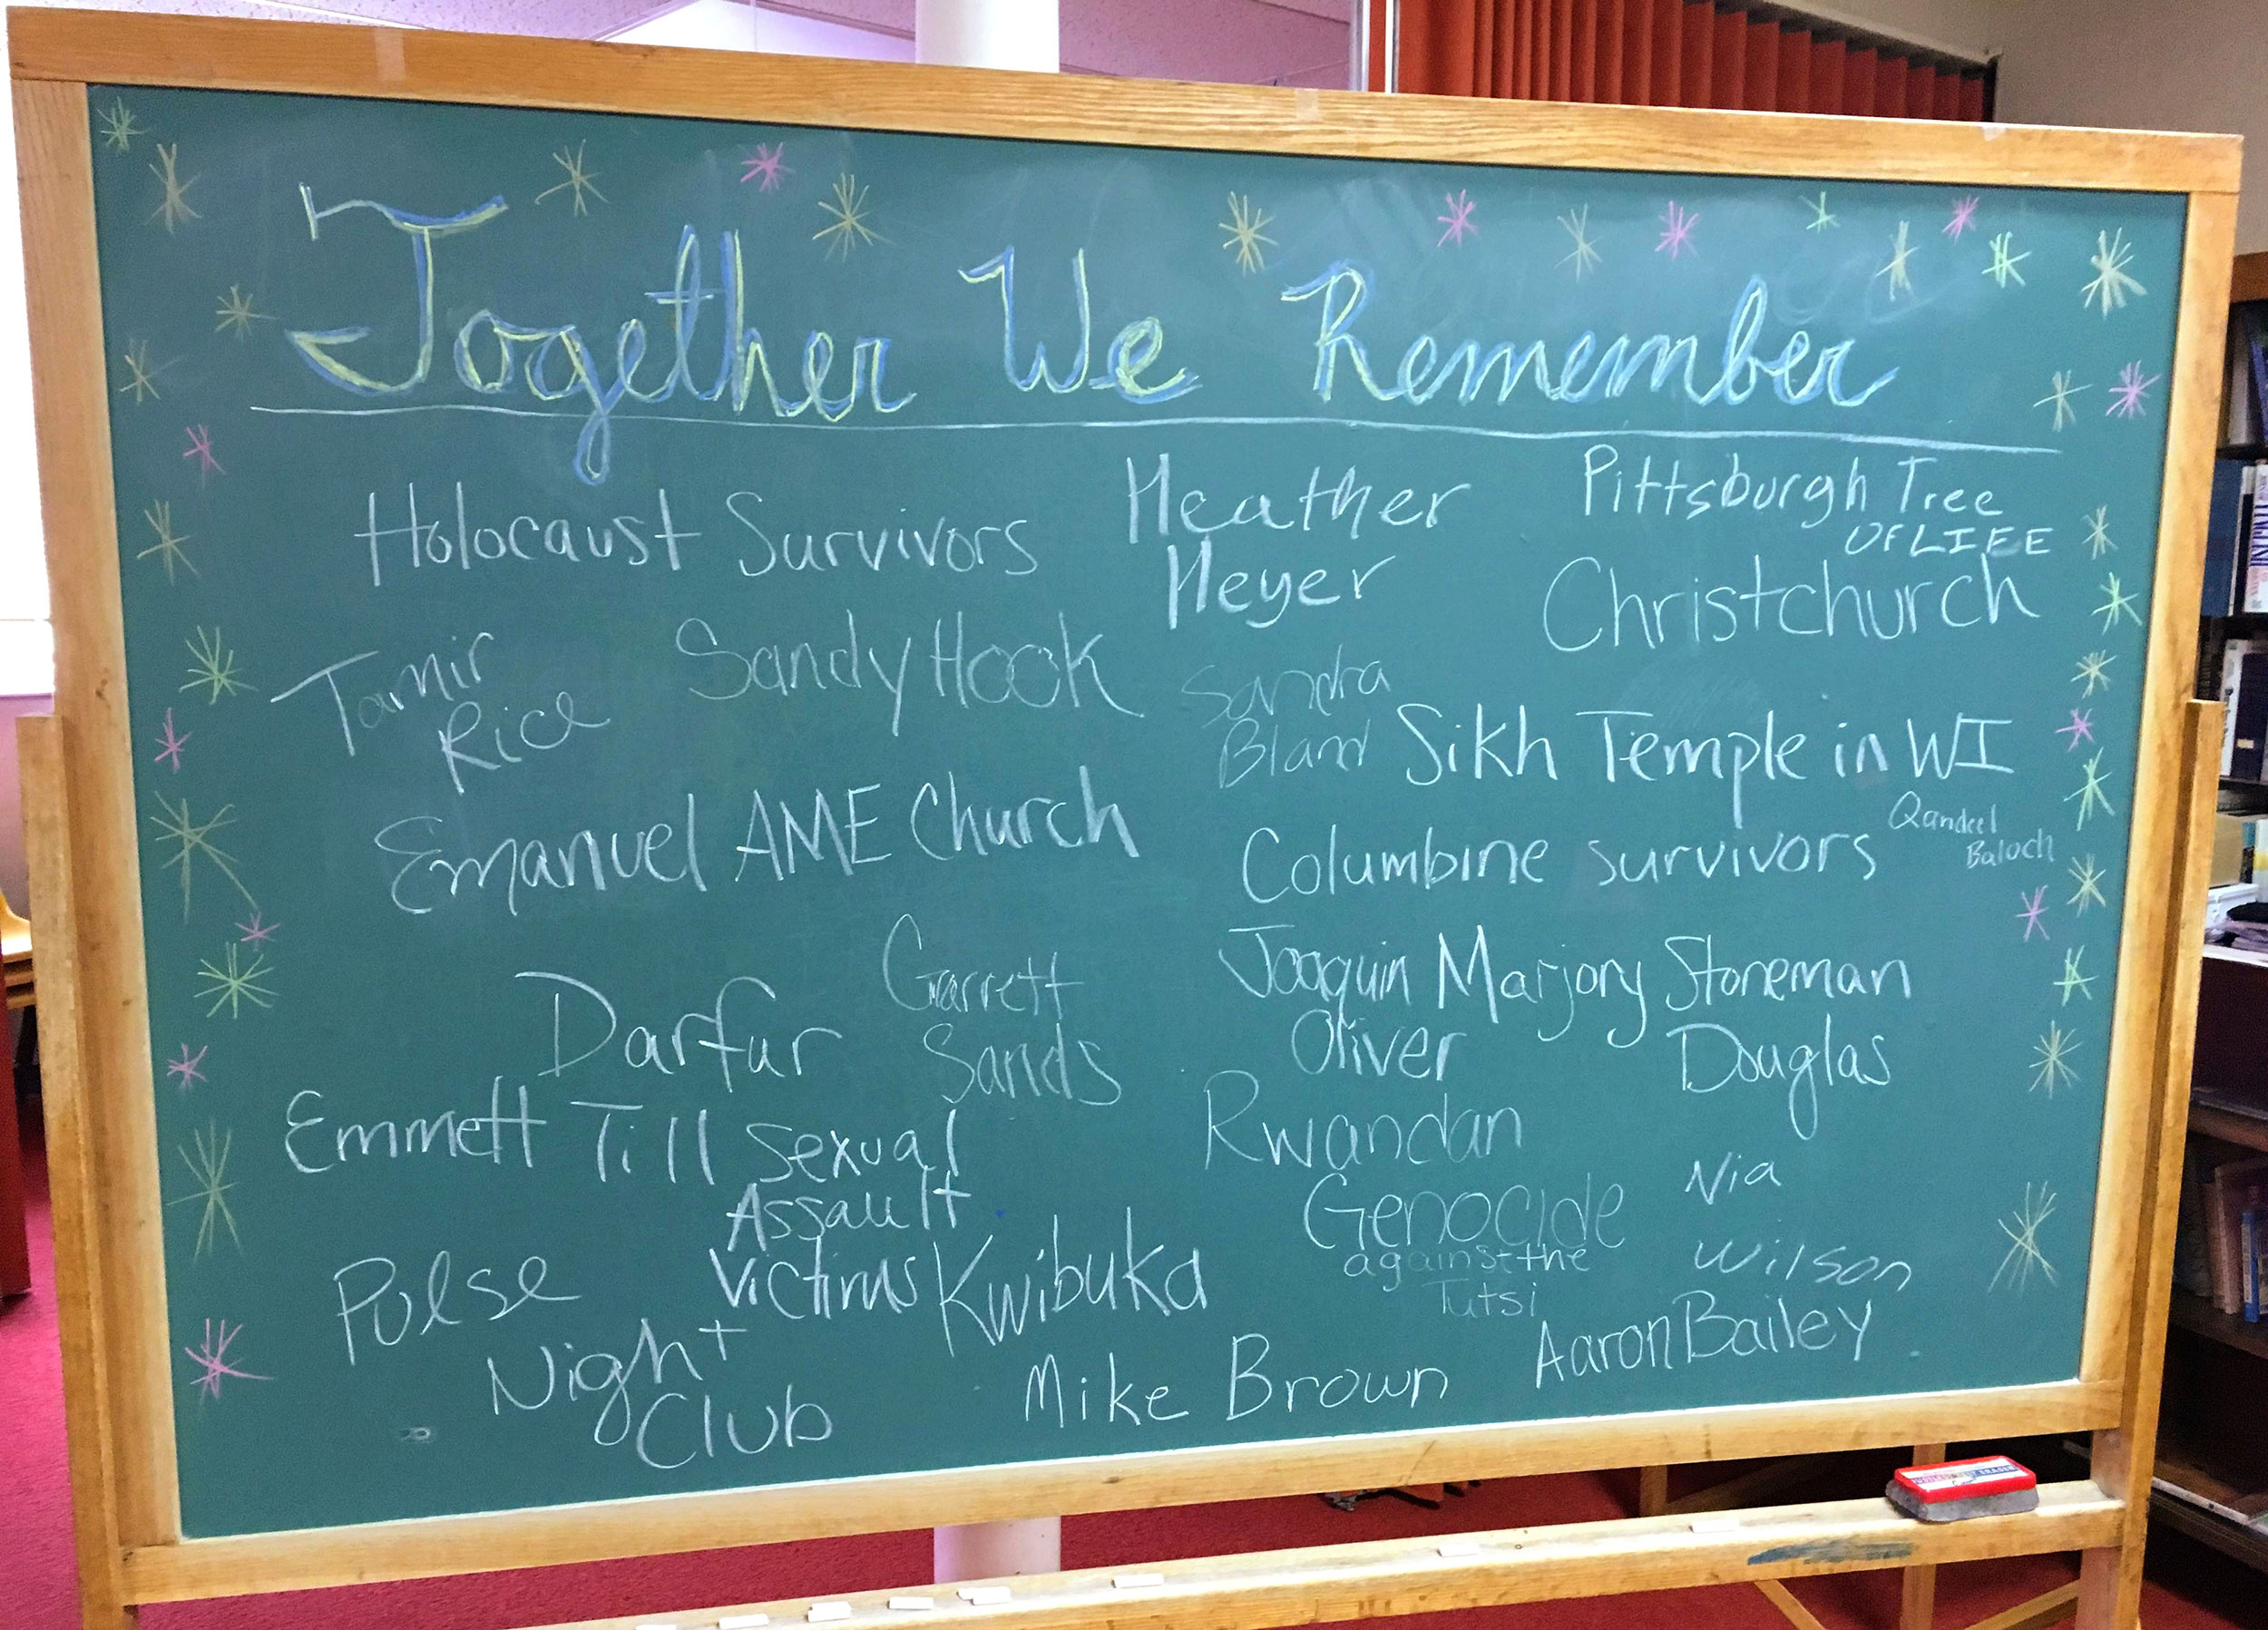 Together We Remember
Holocaust Survivors
Heather
Heyer
Pittsburgh Tree
OF LIFE
Christchurch
Tamir
Rice
Sandy Hook
Sandra
Bland
Sikh Temple in WI
Emanuel AME Church
Columbine survivors
Qandeel
Baloch
Darfur
Garrett
Sands
Joaquin
Oliver
Marjory Stoneman
Douglas
Emmett Till
Sexual
Assault
Victims
Rwandan
Genocide
against the
Tutsi
Nia
Wilson
Pulse
Night
Club
Kwibuka
Mike Brown
Aaron Bailey